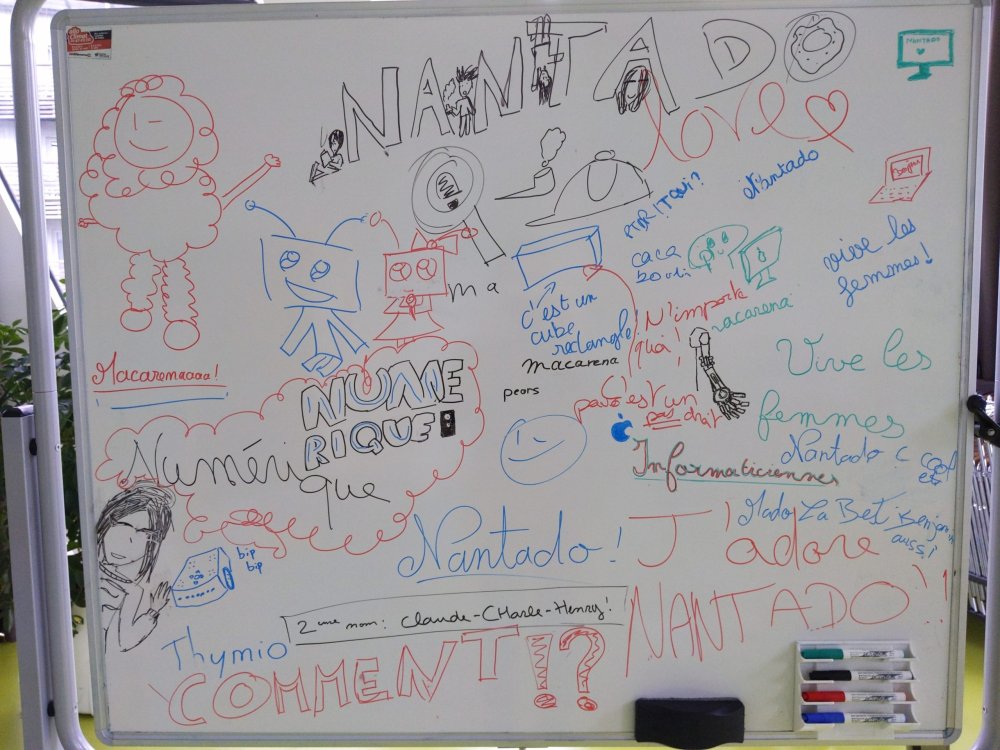 NANTADO
NANTADO
love
Bonjour
Nantado
vive les
femmes!
caca
boudin
ma
c'est un
cube
rectangle!
N'importe
quoi!
macarena
macarena
Macarenaaaa!
pears
Vive les
femmes
NUME
RIQUE
Numéri
que
c'est un
pas droit
Informaticiennes
Nantado c
cool
Nantado!
J'adore
NANTADO!!
Mado La Bet
Benjamin
aussi!
bip
bip
2eme nom: Claude-CHarle-Henry!
Thymio
COMMENT!?